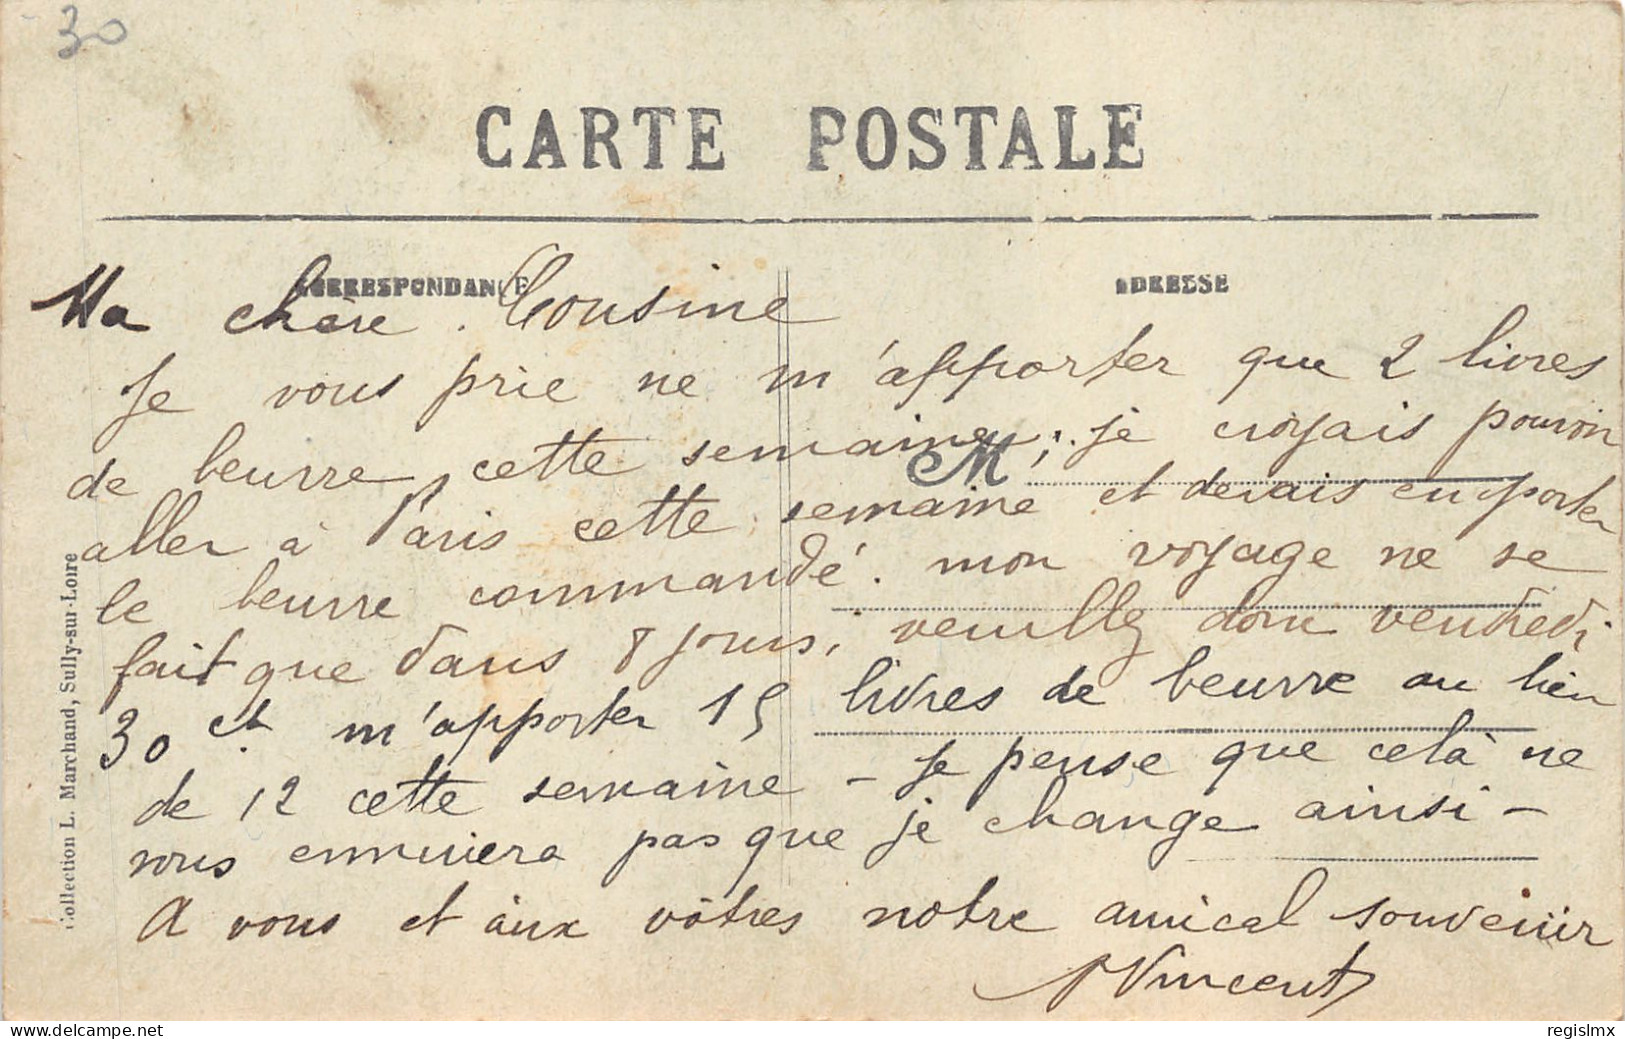 30
CARTE POSTALE
CORRESPONDANCE
ADRESSE
Ma chère Cousine
Je vous prie ne m'apporter que 2 livres
de beurre cette semaine; je croyais pouvoir
M
aller à Paris cette semaine et devais emporter
le beurre commandé. mon voyage ne se
fait que dans 8 jours, veuillez donc vendredi
30 ct m'apporter 15 livres de beurre au lieu
de 12 cette semaine – Je pense que celà ne
vous ennuiera pas que je change ainsi –
A vous et aux vôtres notre amical souvenir
Vincent
Collection L. Marchand, Sully-sur-Loire
delcampe.net
regislmx